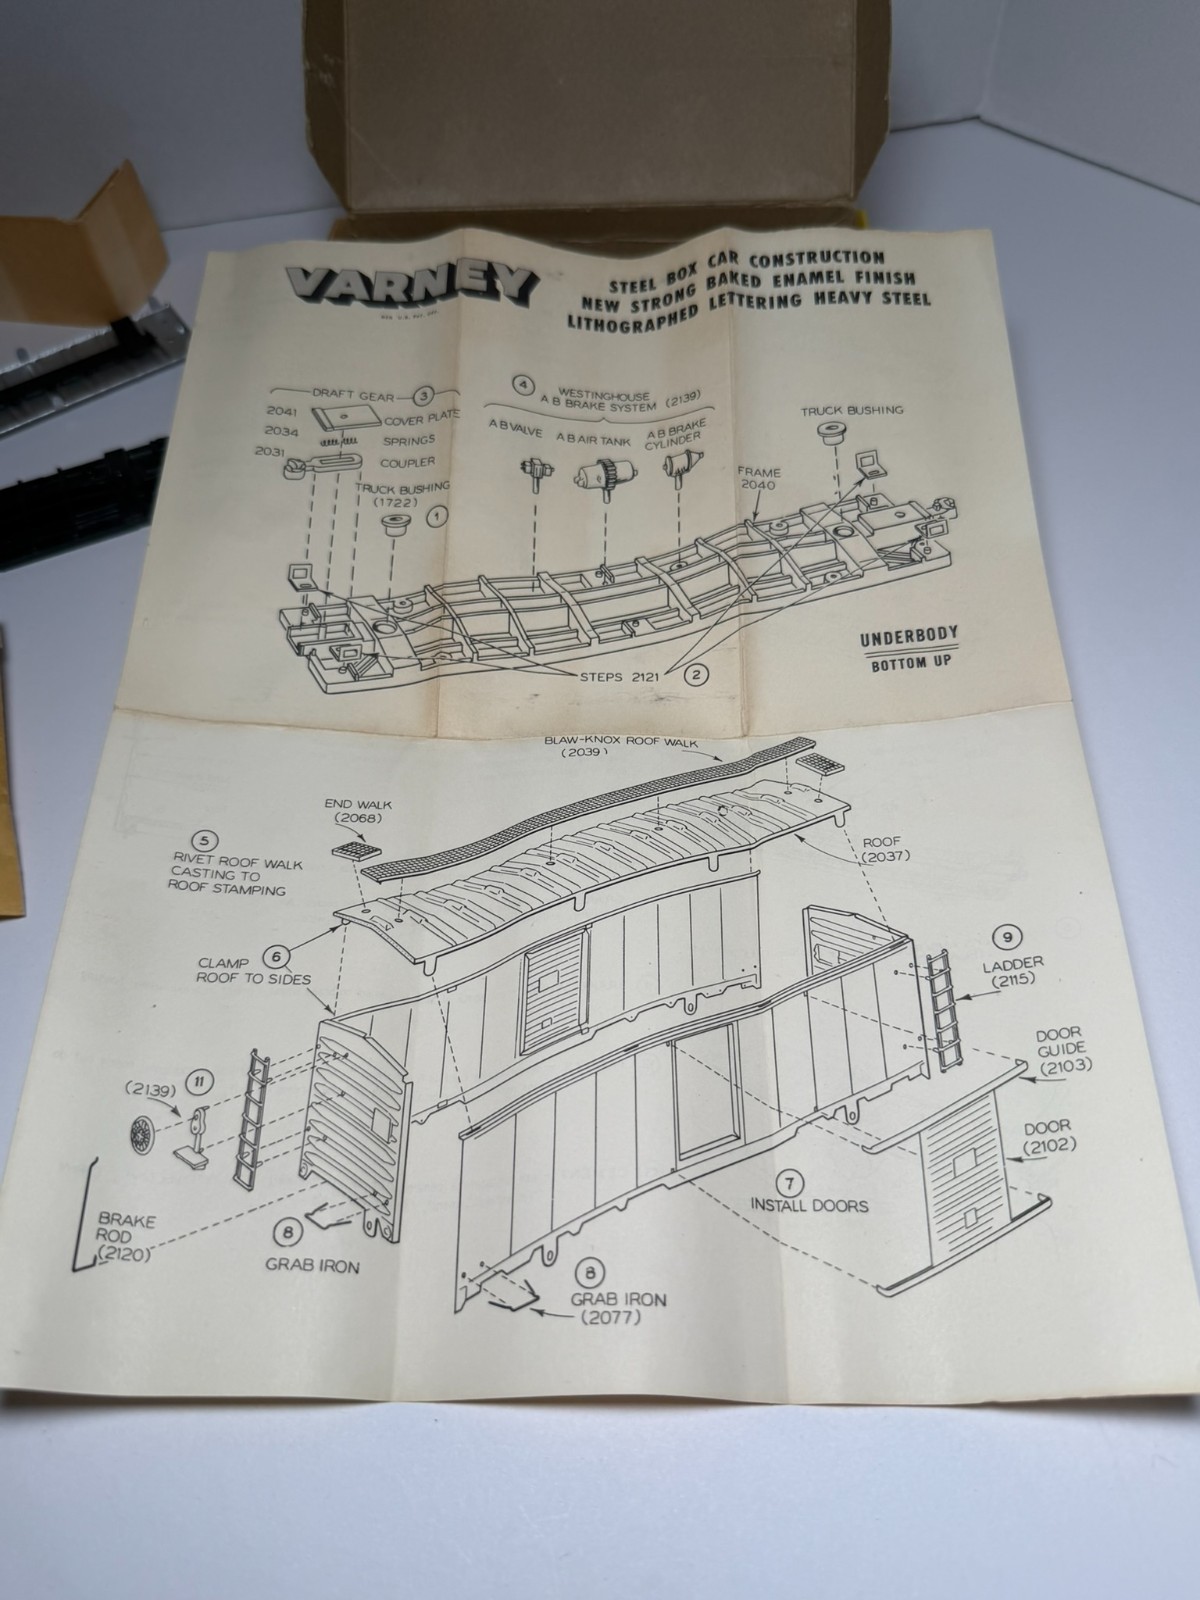 VARNEY
REG. U.S. PAT. OFF.
STEEL BOX CAR CONSTRUCTION
NEW STRONG BAKED ENAMEL FINISH
LITHOGRAPHED LETTERING HEAVY STEEL
DRAFT GEAR 3
2041
COVER PLATE
2034
SPRINGS
2031
COUPLER
TRUCK BUSHING
(1722)
1
4
WESTINGHOUSE
A B BRAKE SYSTEM (2139)
A B VALVE
A B AIR TANK
A B BRAKE
CYLINDER
TRUCK BUSHING
FRAME
2040
UNDERBODY
BOTTOM UP
STEPS 2121 2
BLAW-KNOX ROOF WALK
(2039)
END WALK
(2068)
5
RIVET ROOF WALK
CASTING TO
ROOF STAMPING
ROOF
(2037)
CLAMP 6
ROOF TO SIDES
9
LADDER
(2115)
DOOR
GUIDE
(2103)
DOOR
(2102)
(2139)
11
7
INSTALL DOORS
BRAKE
ROD
(2120)
8
GRAB IRON
8
GRAB IRON
(2077)